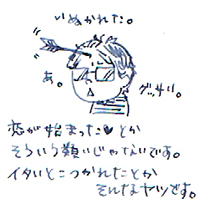 いぬかれた。
あ。
グッサリ。
恋が始まった♥とか
そういう類いじゃないです。
イタいとこつかれたとか
そんなヤツです。